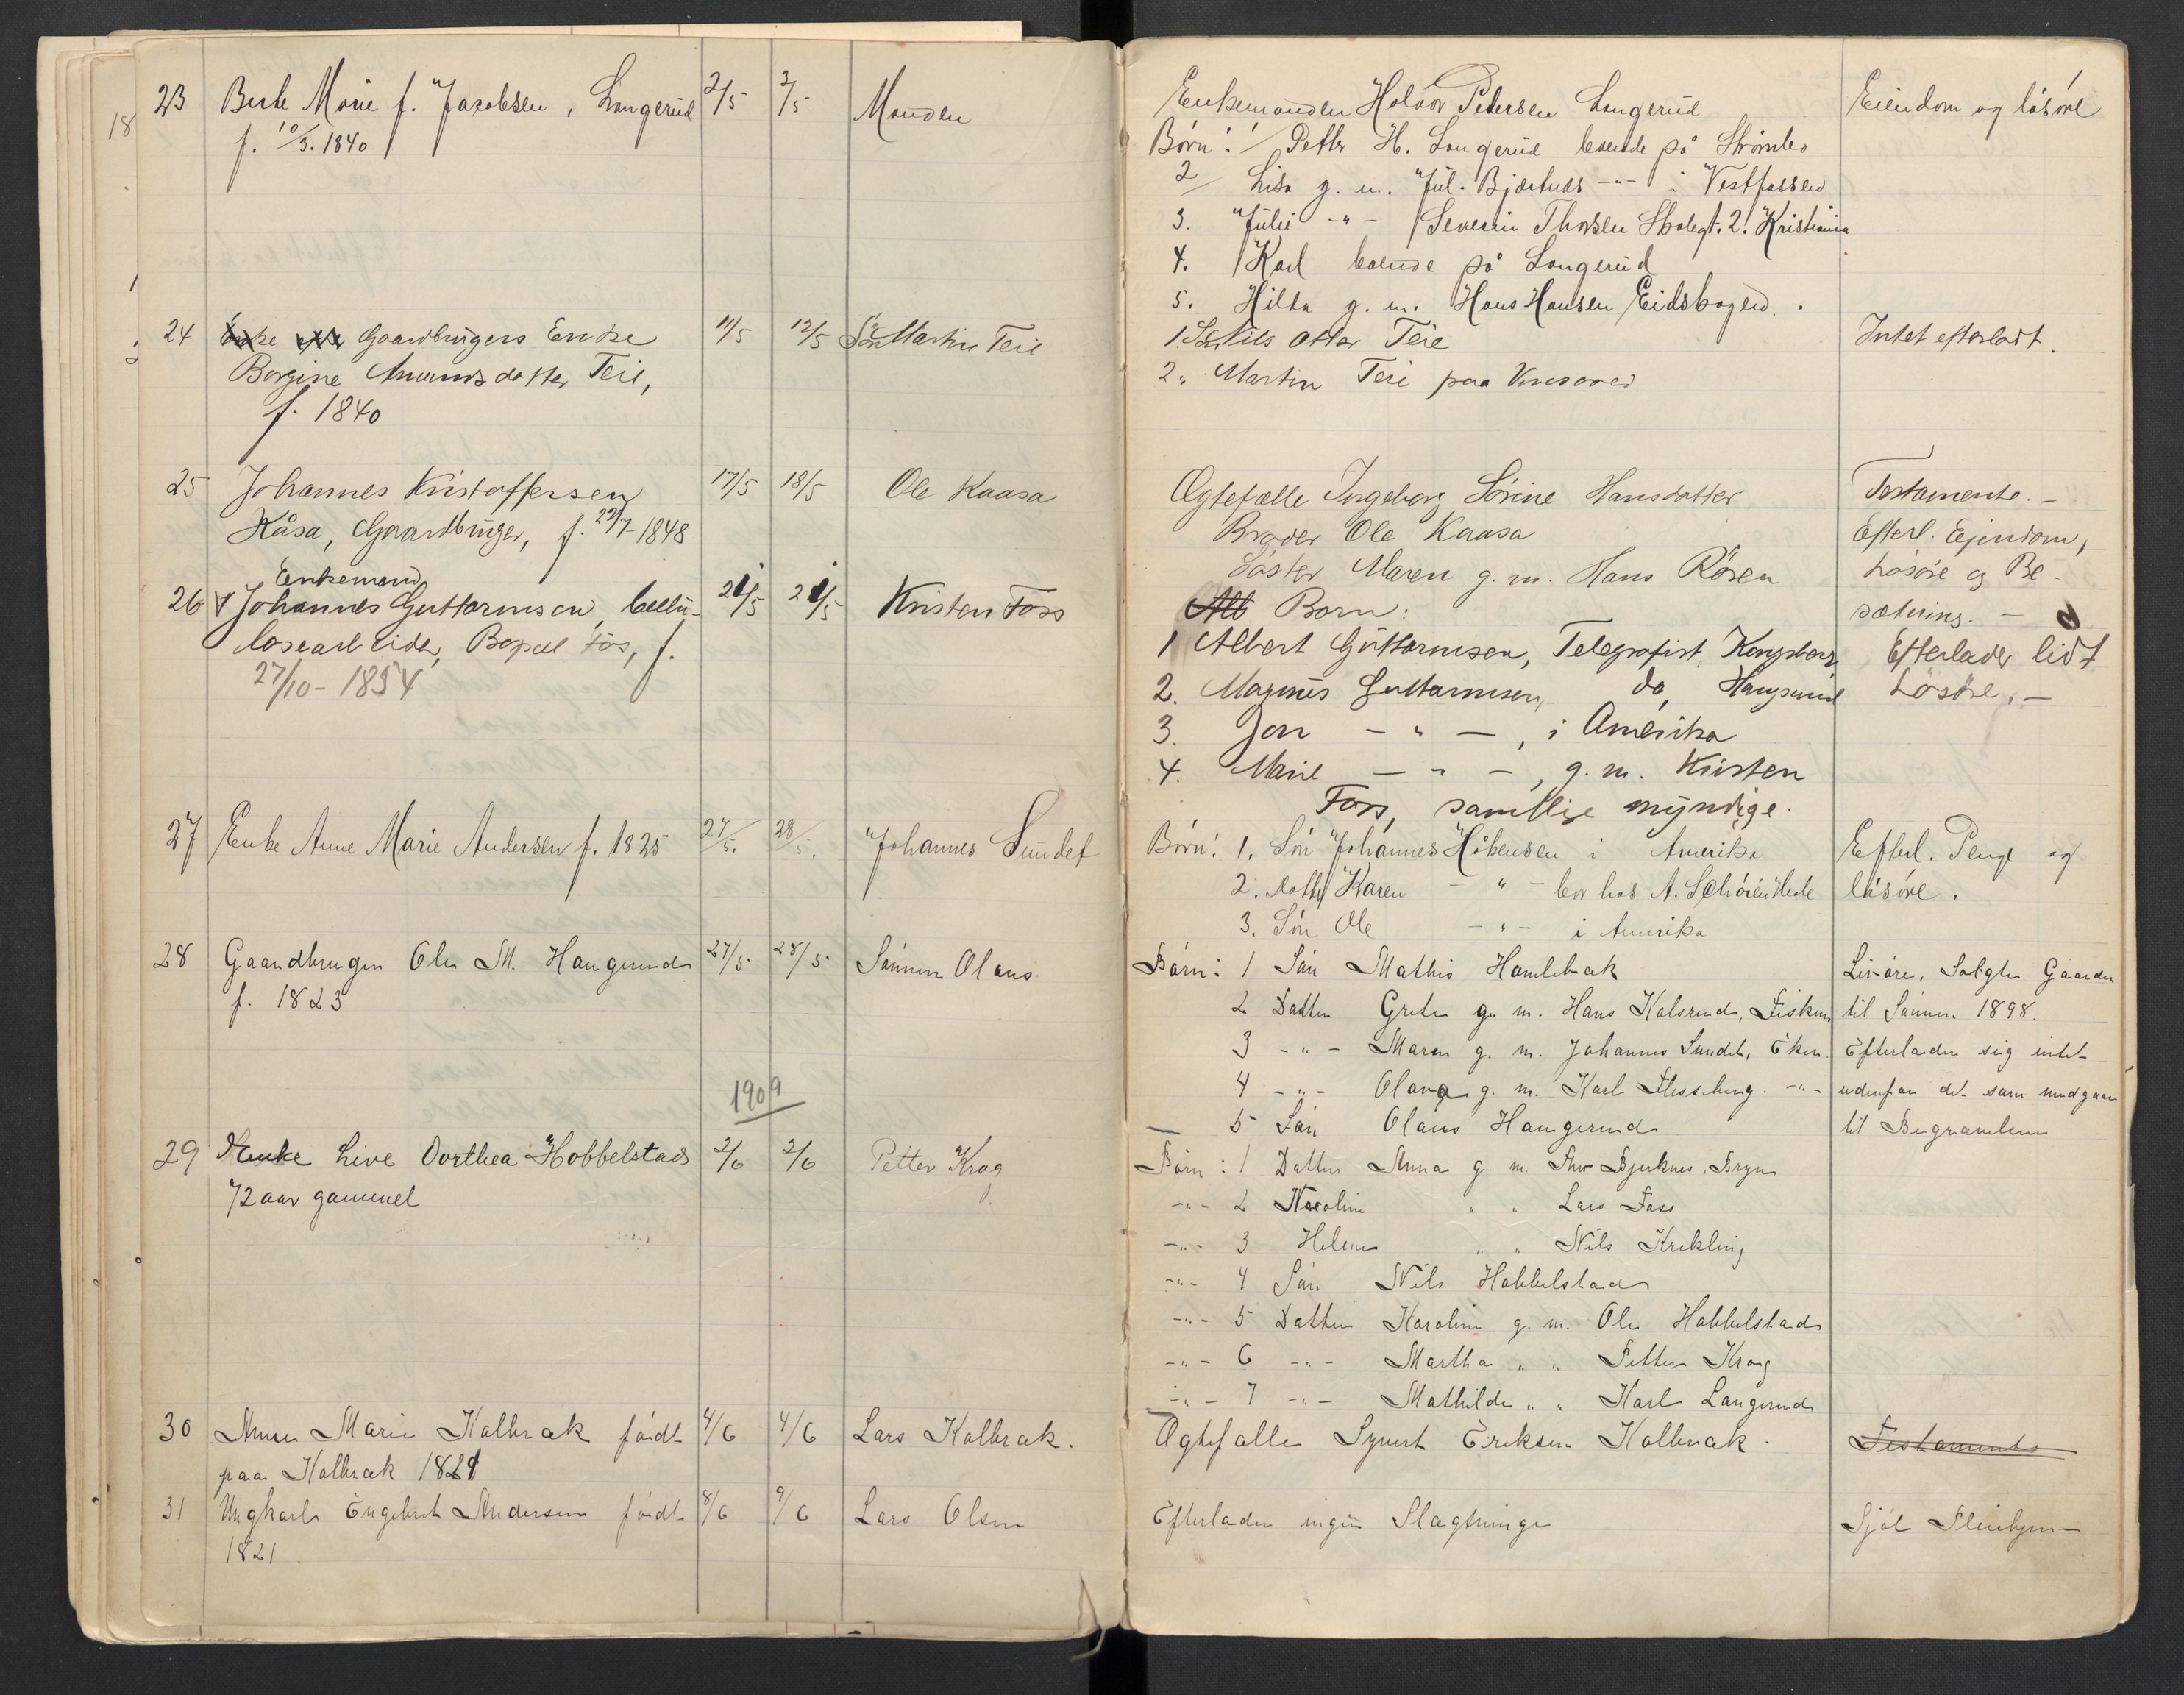 23 Berte Marie f. Jacobsen, Langerud 2/5 2/5 Manden
f. 10/3. 1840
24 Gaardbrugers Enke 11/5 12/5 Søn Martin Teie
Borgine Amundsdatter Teie,
f. 1840
25 Johannes Kristoffersen 17/5 18/5 Ole Kaasa
Kåsa, Gaardbruger, f. 29/7-1848
Enkemand
26 Johannes Guttormsen, cellu- 21/5 21/5 Kristen Foss
losearbeider, Bopæl Fos, f.
27/10-1854
27 Enke Anne Marie Andersen f. 1825 27/5. 28/5. Johannes Sundet
28 Gaardbruger Ole M. Haugerud 27/5 28/5 Sønnen Olaus
f. 1823
1909
29 Enke Live Dorthea Hobbelstad 2/6 2/6 Petter Krog
72 aar gammel
30 Anne Marie Kolbræk født 4/6 4/6 Lars Kolbræk.
paa Kolbræk 1821
31 Ungkarl Engebret Andersen født 8/6 9/6 Lars Olsen
1821
Enkemanden Halvor Pedersen Langerud
Børn: 1/ Petter H. Langerud boende på Strømbo
2/ Lisa g. m. Jul. Bjærtnes -"- i Vestfossen
3. Julie -"- Severin Thorsen 2. Kristiania
4. Karl boende på Langerud
5. Hilda g. m. Hans Hansen Eidskogen.
1. Søn Nils Otter Teie
2. Martin Teie paa
Ægtefælle Ingeborg Sörine Hansdatter
Broder Ole Kaasa
Søster Maren g. m. Hans Røren
Børn:
1 Albert Guttormsen, Telegrafist, Kongsberg
2. Magnus Guttormsen, do, Haugsund
3. Jon - " -, i Amerika
4. Marie - " -, g. m. Kristen
Foss, samtlige myndige.
Børn: 1. Søn Johannes Håkensen i Amerika
2. Datter Karen - " - bor hos A. Schøien Hede
3. Søn Ole - " - i Amerika
Børn: 1 Søn Mathis Hamlebak
2 Datter Grete g. m. Hans Kolsrud, Fiskum
3 -"- Maren g. m. Johannes Sundet, Eker
4 -"- Olava g. m. Karl Flesseberg. -"-
5 Søn Olaus Haugerud
Børn: 1 Datter Anna g. m. Thv Bjerknes, Bryn
-"- 2 Nicoline " " Lars Foss
-"- 3 Helene " " Nils Krekling
-"- 4 Søn Nils Hobbelstad
-"- 5 Datter Karoline g. m. Ole Hobbelstad
-"- 6 -"- Martha " " Petter Krog
-"- 7 -"- Mathilde " " Karl Langerud
Ægtefælle Syvert Eriksen Kolbræk.
Efterlader ingen Slægtninge
Eiendom og løsøre
Intet efterladt.
Testamente. -
Efterl. Ejendom,
Løsøre og Be-
sætning. -
Efterlader lidt
Løsøre. -
Efterl. Penge og
løsøre.
Livøre, Solgte Gaarden
til Sønnen 1898.
Efterlader sig intet
udenfor det som medgaar
til Begravelsen
Testamente